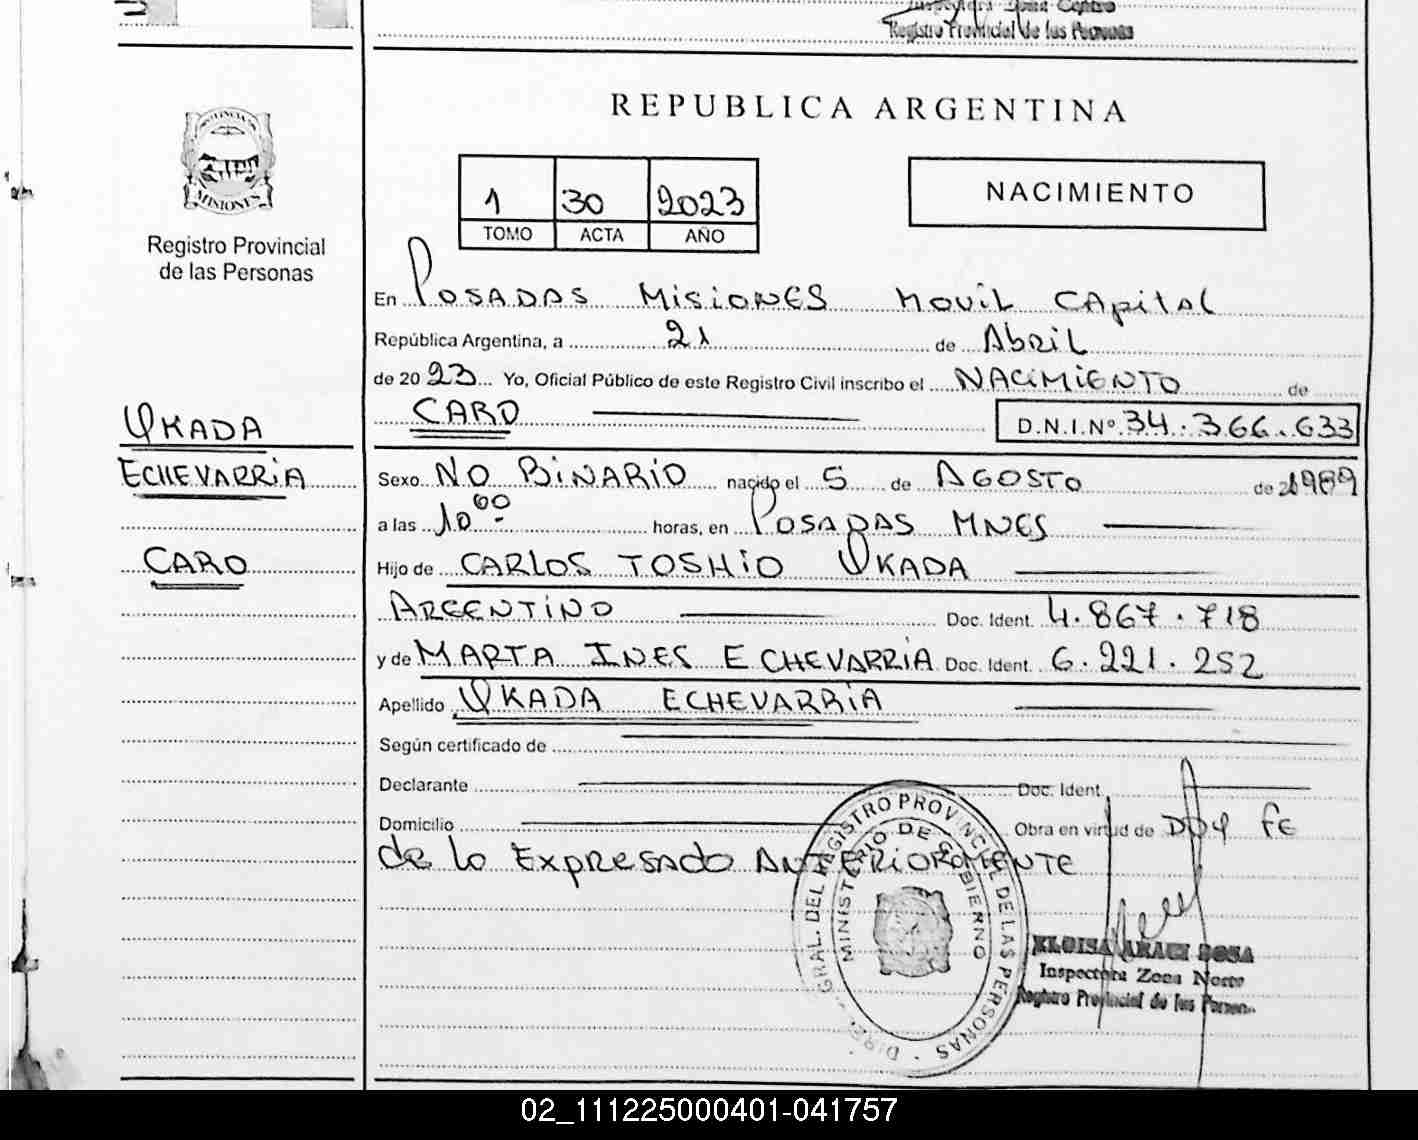 Inspectora Zona Centro
Registro Provincial de las Personas
PROVINCIA DE
MISIONES
Registro Provincial
de las Personas
REPUBLICA ARGENTINA
1 30 2023
TOMO ACTA AÑO
NACIMIENTO
En Posadas Misiones Movil Capital
República Argentina, a 21 de Abril
de 2023 Yo, Oficial Público de este Registro Civil inscribo el NACIMIENTO de
CARO D.N.I.Nº 34.366.633
OKADA
ECHEVARRIA
CARO
Sexo NO BINARIO nacido el 5 de AGOSTO de 1989
a las 10 00 horas, en POSADAS MNES
Hijo de CARLOS TOSHIO OKADA
ARGENTINO Doc. Ident. 4.867.718
y de MARTA INES ECHEVARRIA Doc. Ident. 6.221.252
Apellido OKADA ECHEVARRIA
Según certificado de
Declarante Doc. Ident.
Domicilio Obra en virtud de Doy fe
de lo Expresado ANTERIORMENTE
DIREC. GRAL. DEL REGISTRO PROVINCIAL DE LAS PERSONAS
MINISTERIO DE GOBIERNO
ELOISA ARACI SOSA
Inspectora Zona Norte
Registro Provincial de las Person.
02_111225000401-041757